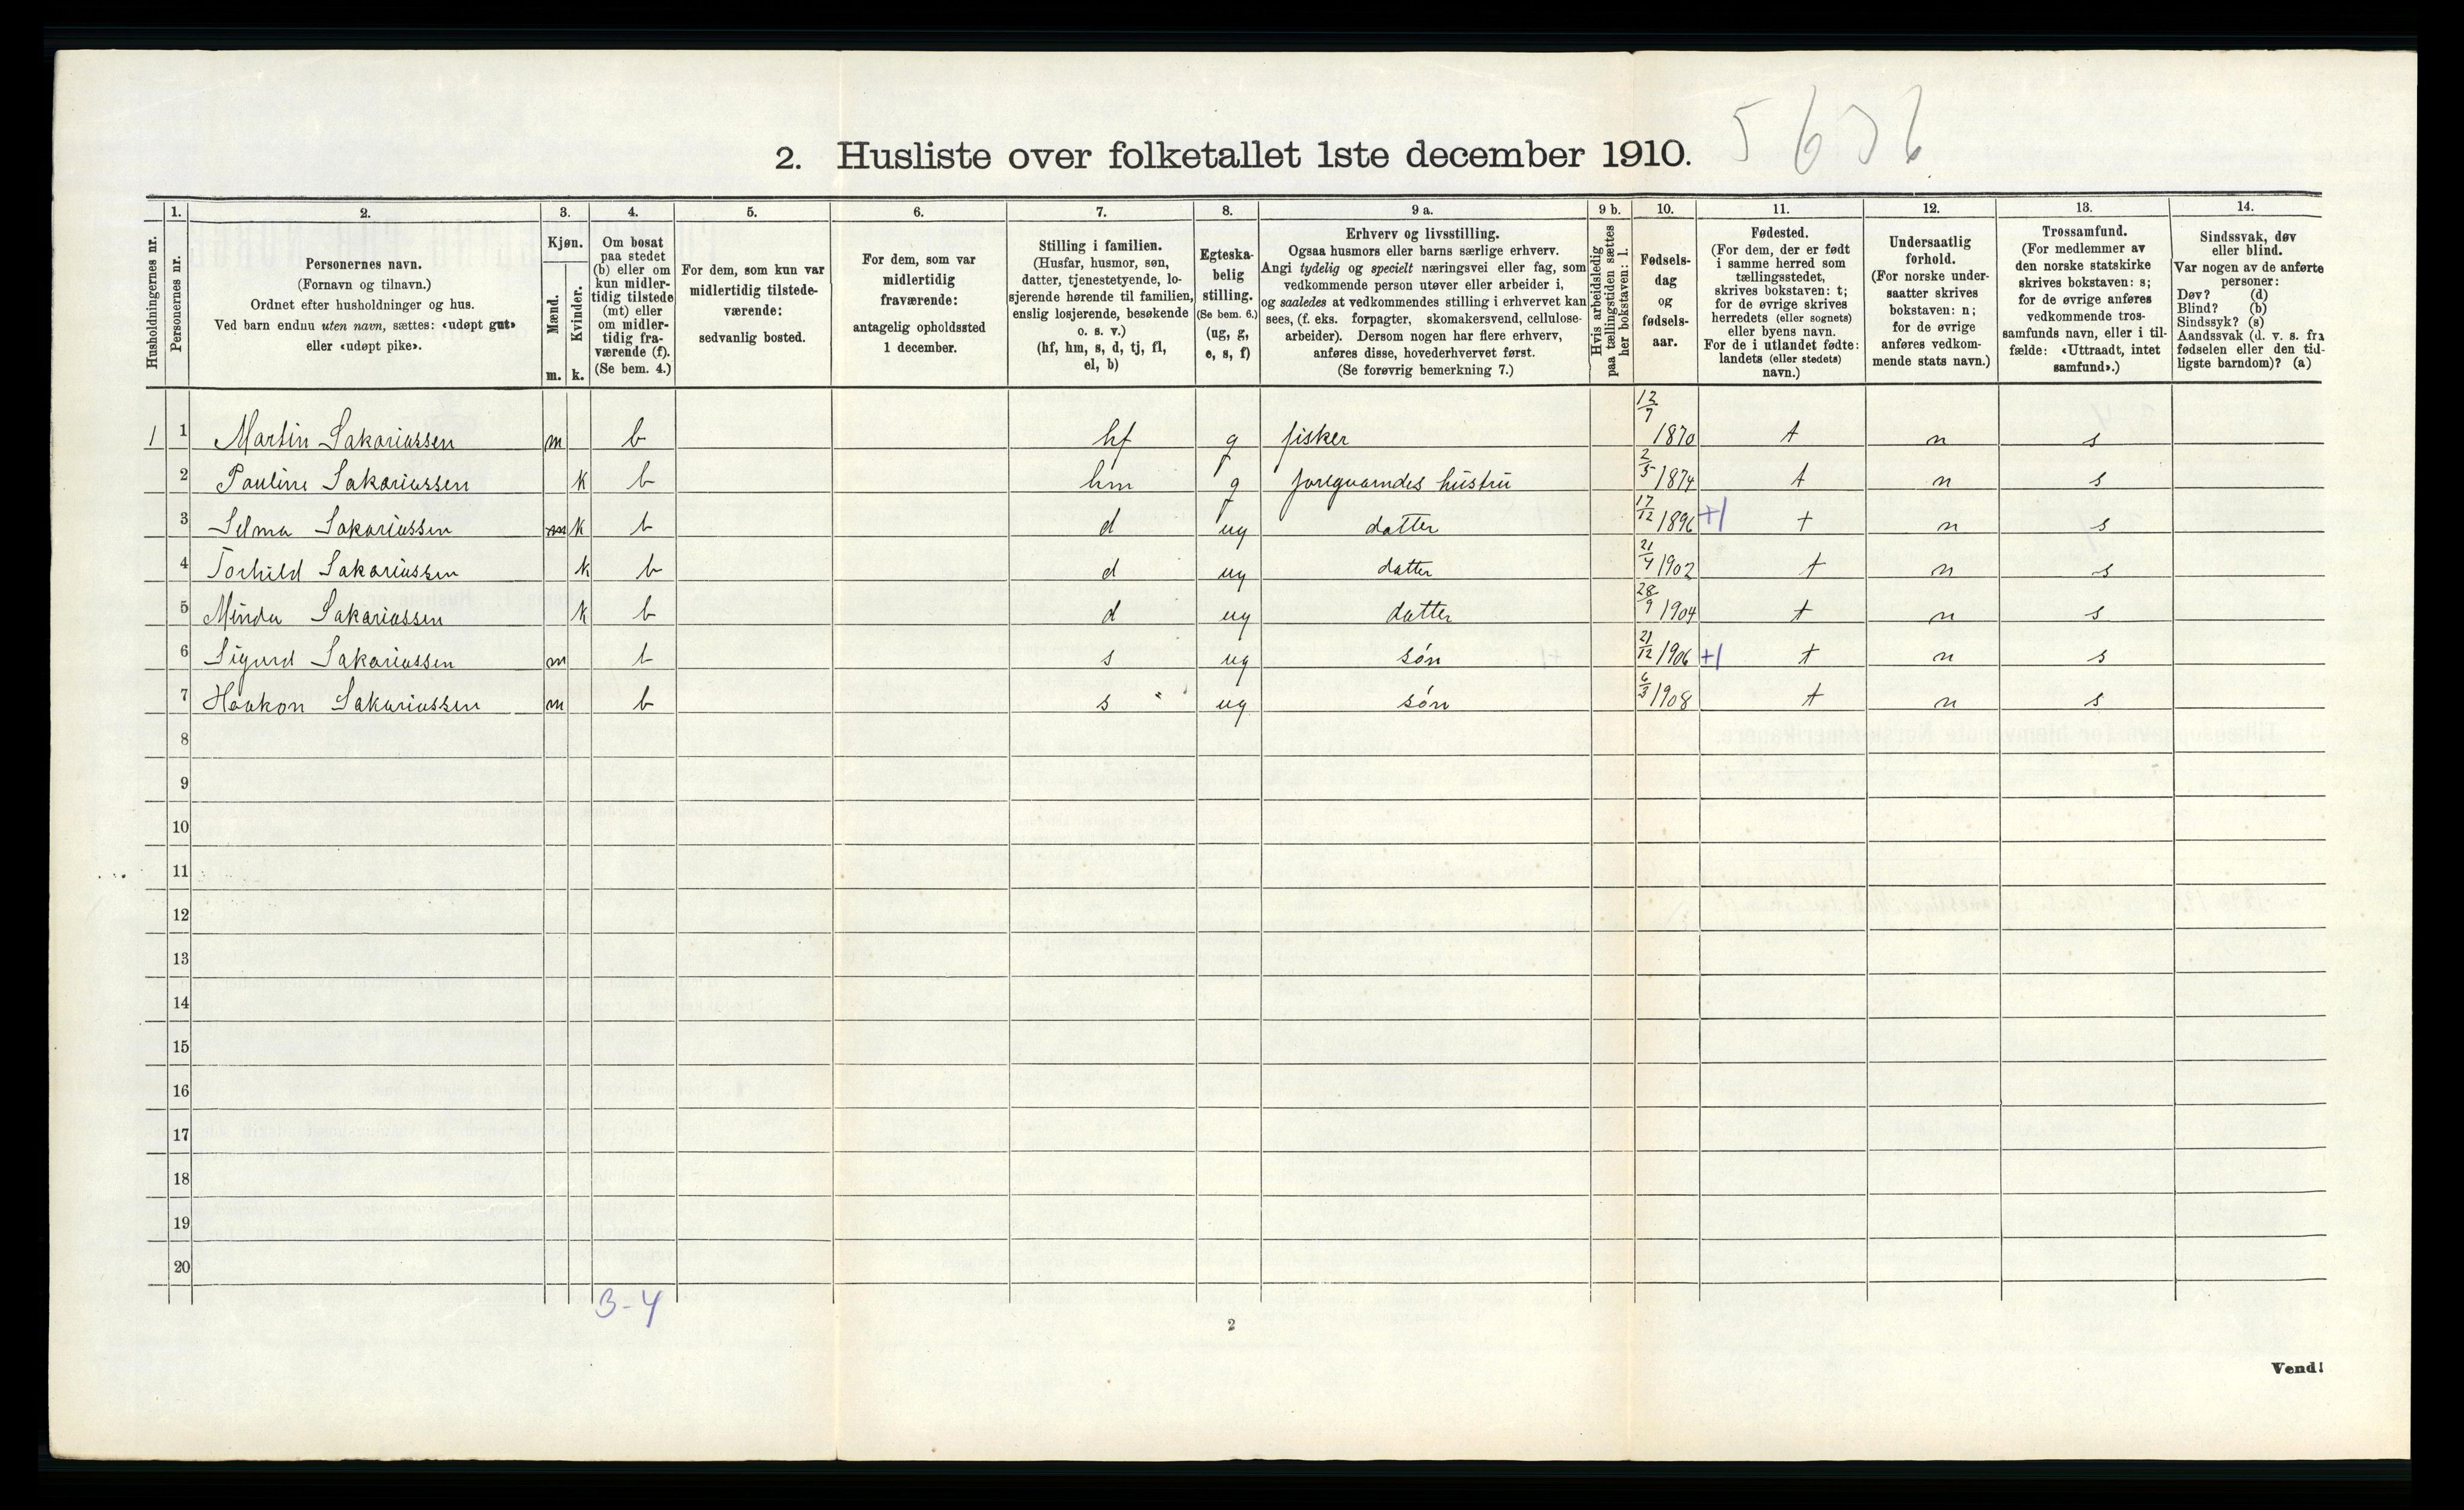 5676
2. Husliste over folketallet 1ste december 1910.
1. 2. 3. 4. 5. 6. 7. 8. 9 a. 9 b. 10. 11. 12. 13. 14.
Husholdningernes nr.
Personernes nr.
Personernes navn.
(Fornavn og tilnavn.)
Ordnet efter husholdninger og hus.
Ved barn endnu uten navn, sættes: «udøpt gut»
eller «udøpt pike».
Kjøn.
Mænd.
Kvinder.
m. k.
Om bosat
paa stedet
(b) eller om
kun midler-
tidig tilstede
(mt) eller
om midler-
tidig fra-
værende (f).
(Se bem. 4.)
For dem, som kun var
midlertidig tilstede-
værende:
sedvanlig bosted.
For dem, som var
midlertidig
fraværende:
antagelig opholdssted
1 december.
Stilling i familien.
(Husfar, husmor, søn,
datter, tjenestetyende, lo-
sjerende hørende til familien,
enslig losjerende, besøkende
o. s. v.)
(hf, hm, s, d, tj, fl,
el, b)
Egteska-
belig
stilling.
(Se bem. 6.)
(ug, g,
e, s, f)
Erhverv og livsstilling.
Ogsaa husmors eller barns særlige erhverv.
Angi tydelig og specielt næringsvei eller fag, som
vedkommende person utøver eller arbeider i,
og saaledes at vedkommendes stilling i erhvervet kan
sees, (f. eks. forpagter, skomakersvend, cellulose-
arbeider). Dersom nogen har flere erhverv,
anføres disse, hovederhvervet først.
(Se forøvrig bemerkning 7.)
Hvis arbeidsledig
paa tællingstiden sættes
her bokstaven: l.
Fødsels-
dag
og
fødsels-
aar.
Fødested.
(For dem, der er født
i samme herred som
tællingsstedet,
skrives bokstaven: t;
for de øvrige skrives
herredets (eller sognets)
eller byens navn.
For de i utlandet fødte:
landets (eller stedets)
navn.)
Undersaatlig
forhold.
(For norske under-
saatter skrives
bokstaven: n;
for de øvrige
anføres vedkom-
mende stats navn.)
Trossamfund.
(For medlemmer av
den norske statskirke
skrives bokstaven: s;
for de øvrige anføres
vedkommende tros-
samfunds navn, eller i til-
fælde: «Uttraadt, intet
samfund».)
Sindssvak, døv
eller blind.
Var nogen av de anførte
personer:
Døv? (d)
Blind? (b)
Sindssyk? (s)
Aandssvak (d. v. s. fra
fødselen eller den tid-
ligste barndom)? (a)
1 1 Martin Sakariassen m b hf g fisker 12/7 1870 t n s
2 Pauline Sakariassen k b hm g foregaaendes hustru 2/5 1874 t n s
3 Selma Sakariassen m k b d ug datter 17/12 1896 +1 t n s
4 Torhild Sakariassen k b d ug datter 21/4 1902 t n s
5 Minda Sakariassen k b d ug datter 28/9 1904 t n s
6 Sigurd Sakariassen m b s ug søn 21/12 1906 +1 t n s
7 Haakon Sakariassen m b s ug søn 6/3 1908 t n s
8
9
10
11
12
13
14
15
16
17
18
19
20
3-4
2
Vend!